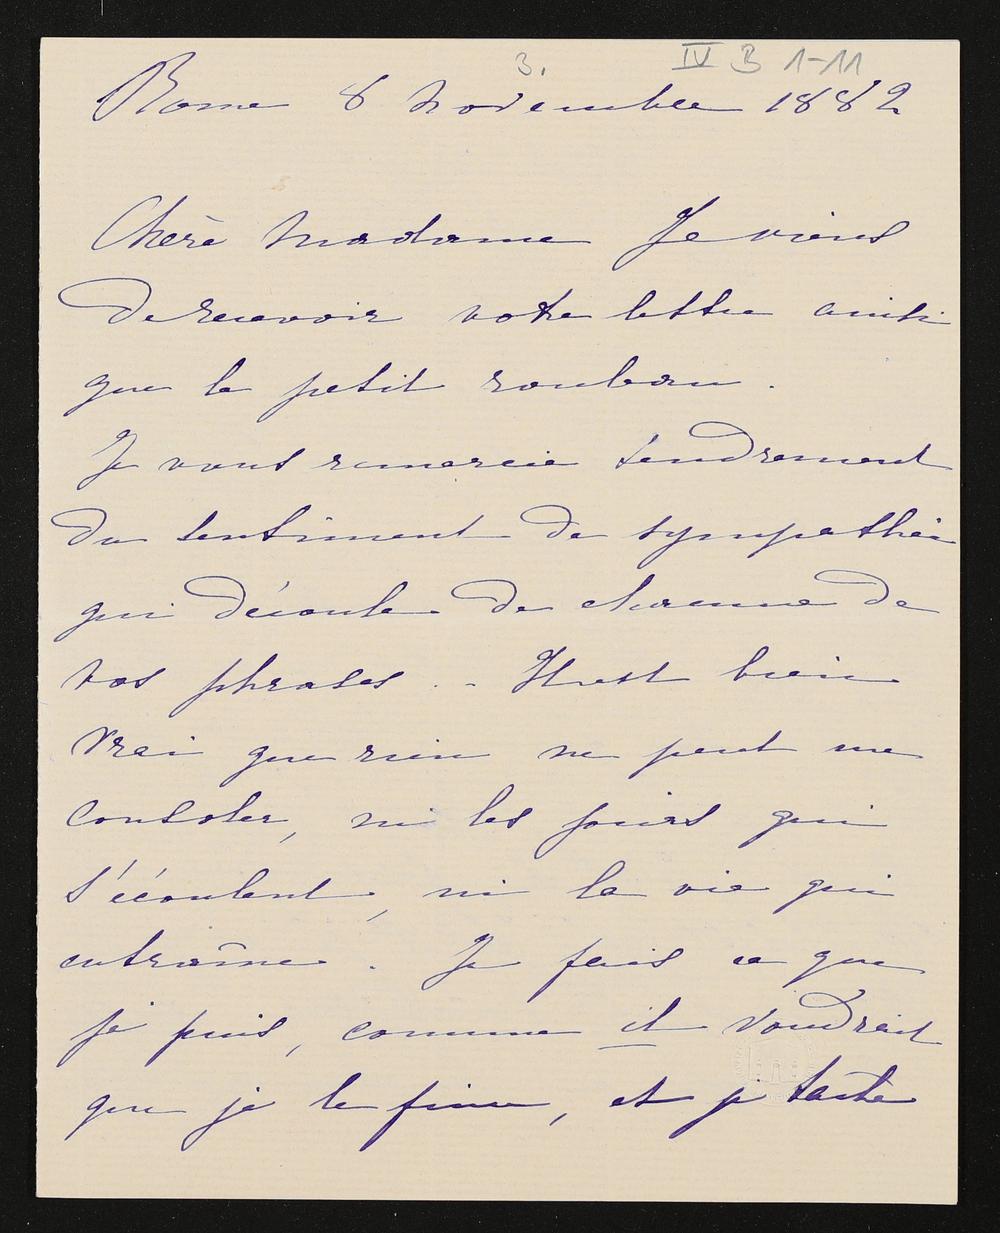 3. IV B 1-11
Rome 8 Novembre 1882
Chère Madame Je viens
de recevoir votre lettre ainsi
que le petit rouleau.
Je vous remercie tendrement
du sentiment de sympathie
qui découle de chacune de
vos phrases .. Il est bien
vrai que rien ne peut me
consoler, ni les jours qui
s'écoulent, ni la vie qui
entraîne. Je fais ce que
je puis, comme il voudrait
que je le fisse, et je